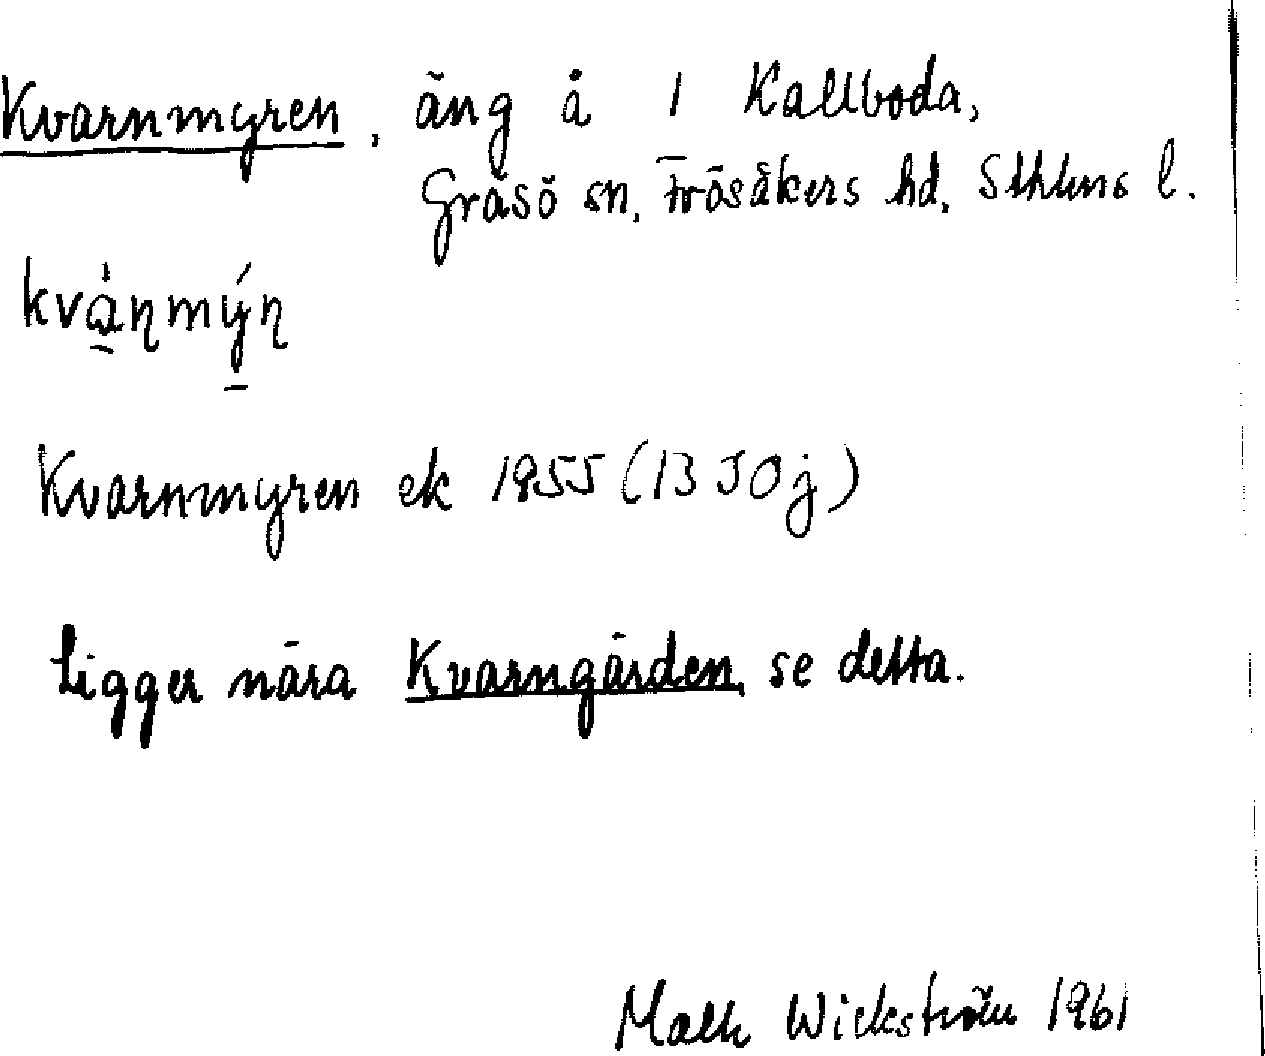 Kvarnmyren, äng å 1 Kallboda,
Gräsö sn, Frösåkers hd, Sthlms l.
kvàɳmýɳ
Kvarnmyren ek 1955 (13 I 0 j)
Ligger nära Kvarngärden, se detta.
Wickström 1961